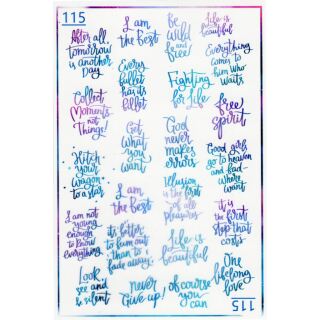 115
After all,
tomorrow
is another
Day
I am
the best
Be
wild
and free
Life is
beautiful
Every
bullet
has its
billet
Fighting
for life
Everything
comes to
him who
waits
Collect
Moments
not
Things!
Get
What
you
want
God
never
makes
errors
free
spirit
Hitch
your
Wagon
to a star
I am
the best
Illusion
is the first
of all
pleasures
Good girls
go to heaven
and bad
where
want
I am not
young
enough
to know
everything
it's better
to burn out
than to
fade away.
Life is
beautiful
it is
the first
step that
costs
Look
see and
& silent
never
Give up!
of course
you can
One
life long
love
115